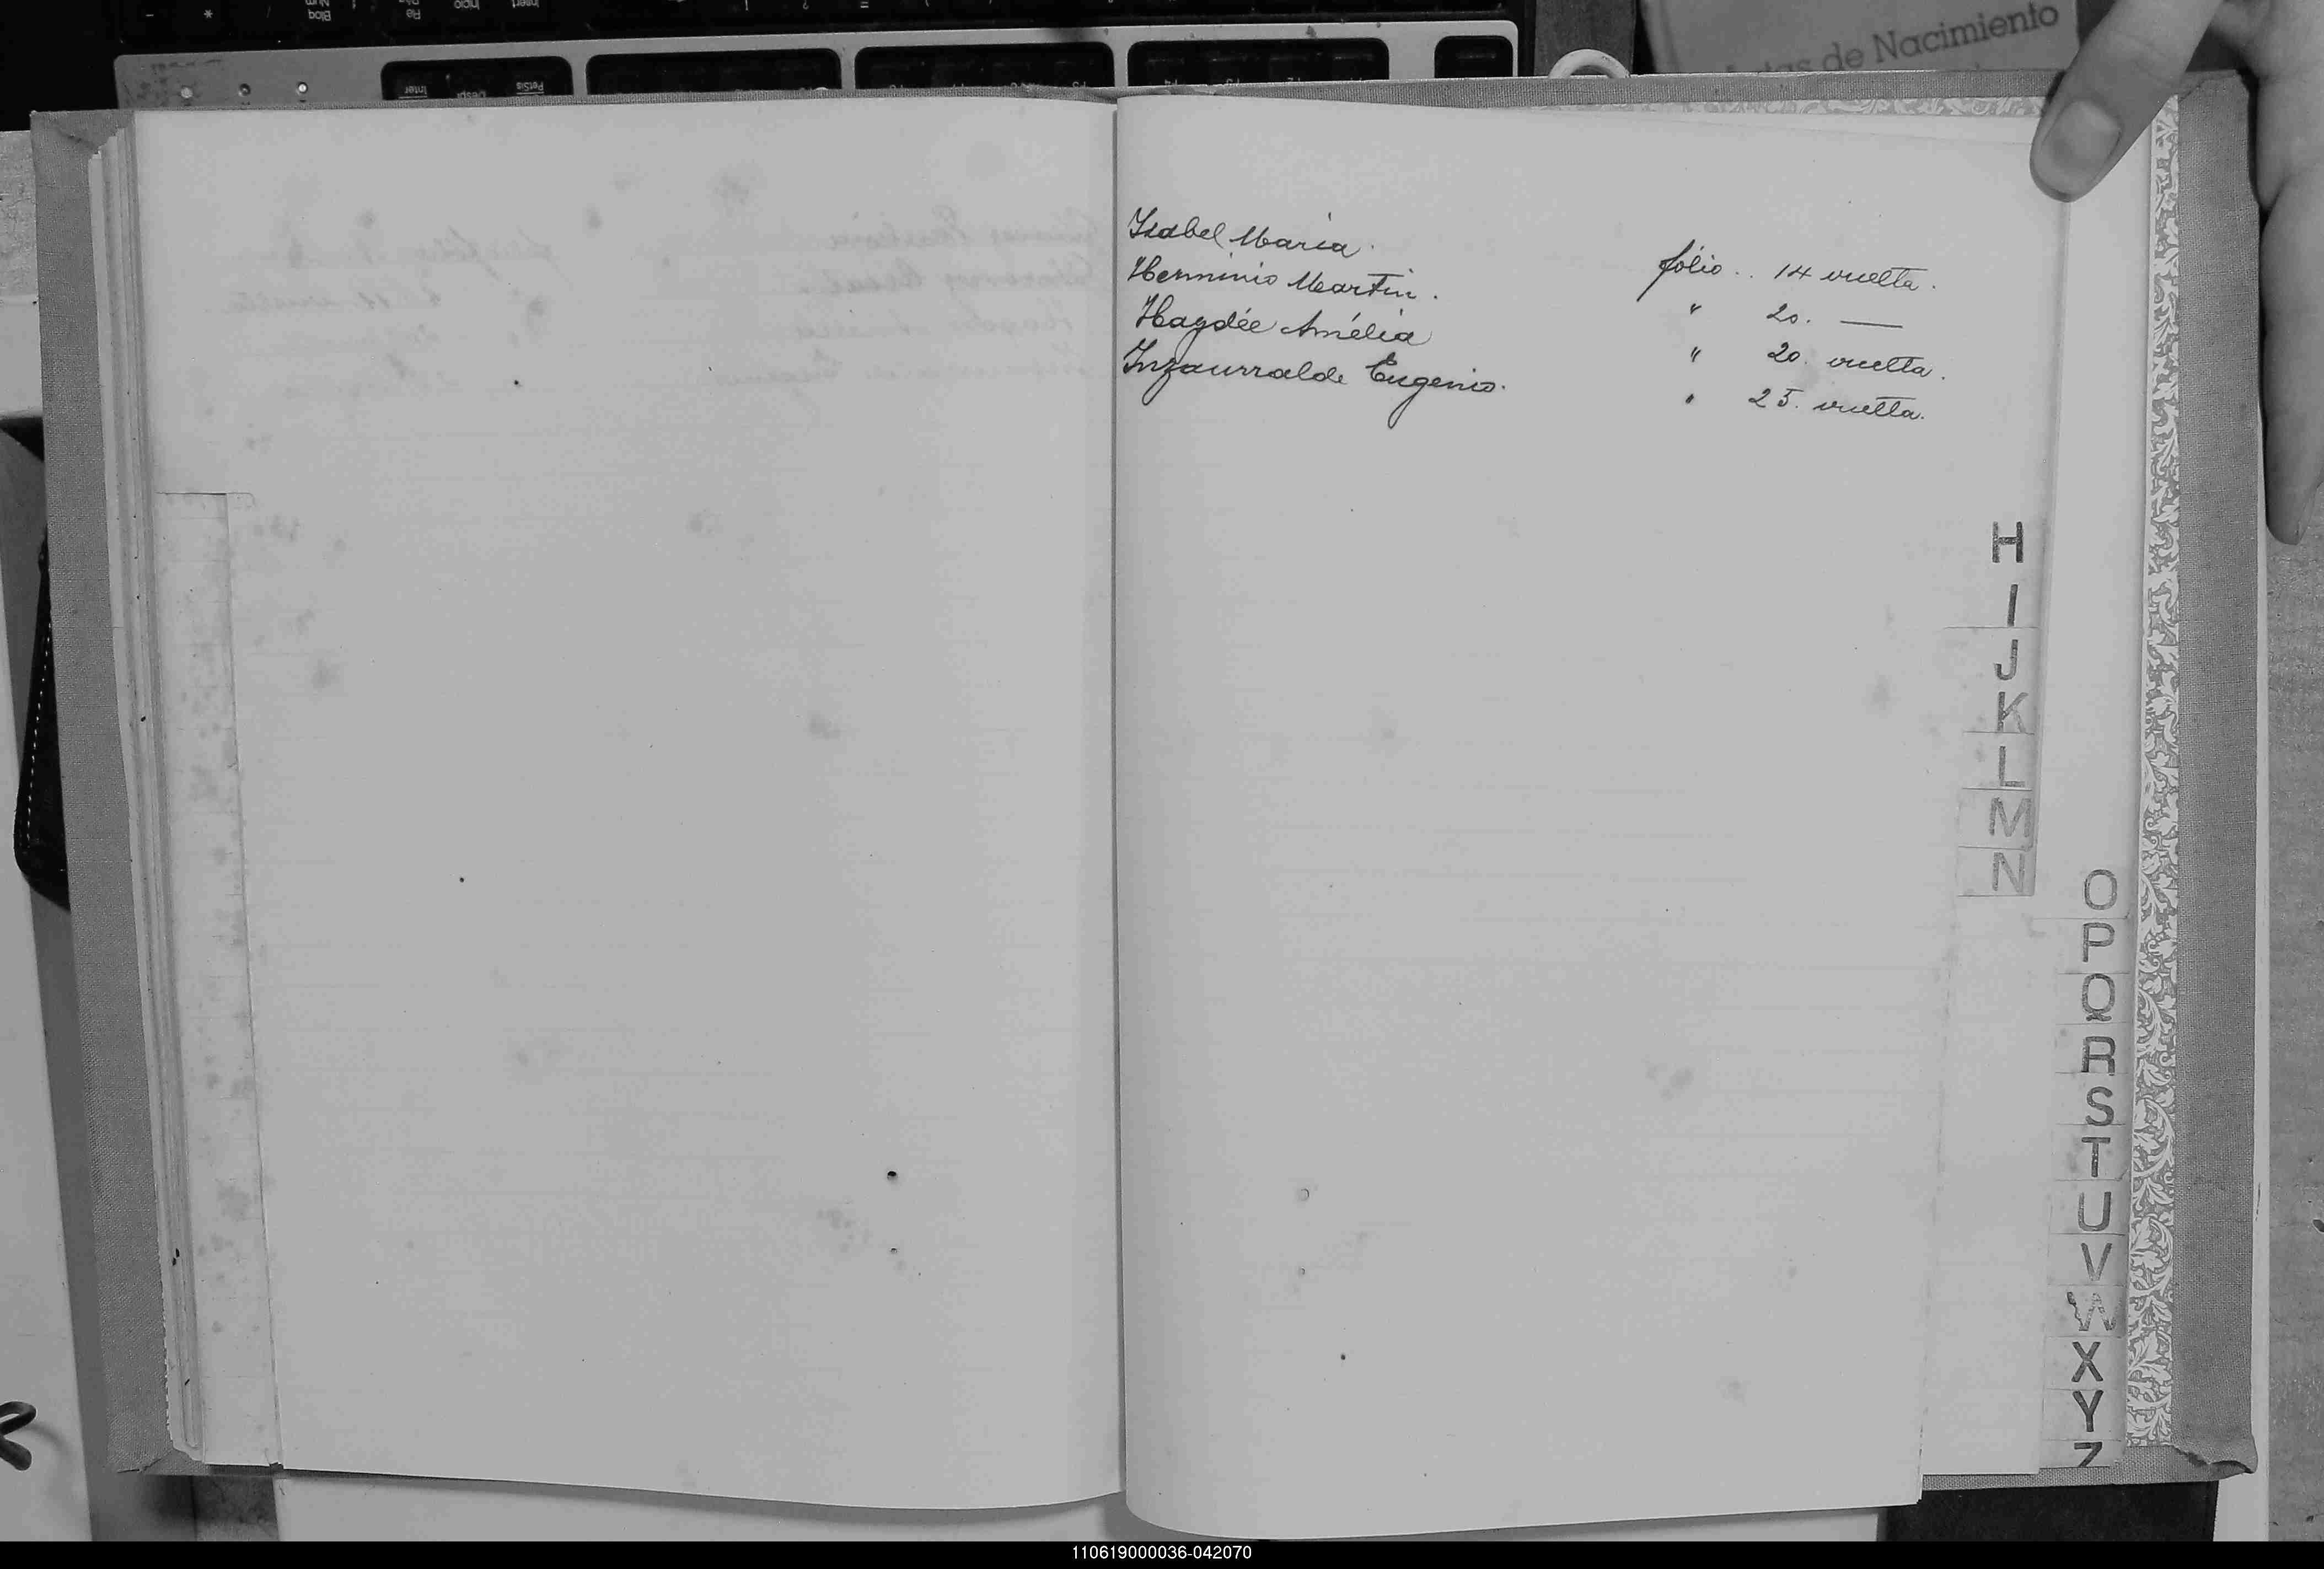 Actas de Nacimiento
Isabel Maria. folio.. 14 vuelta.
Herminio Martin. " 20. —
Haydée Amélia " 20. vuelta.
Inzaurralde Eugenio. " 25. vuelta.
H
I
J
K
L
M
N
O
P
Q
R
S
T
U
V
W
X
Y
Z
110619000036-042070